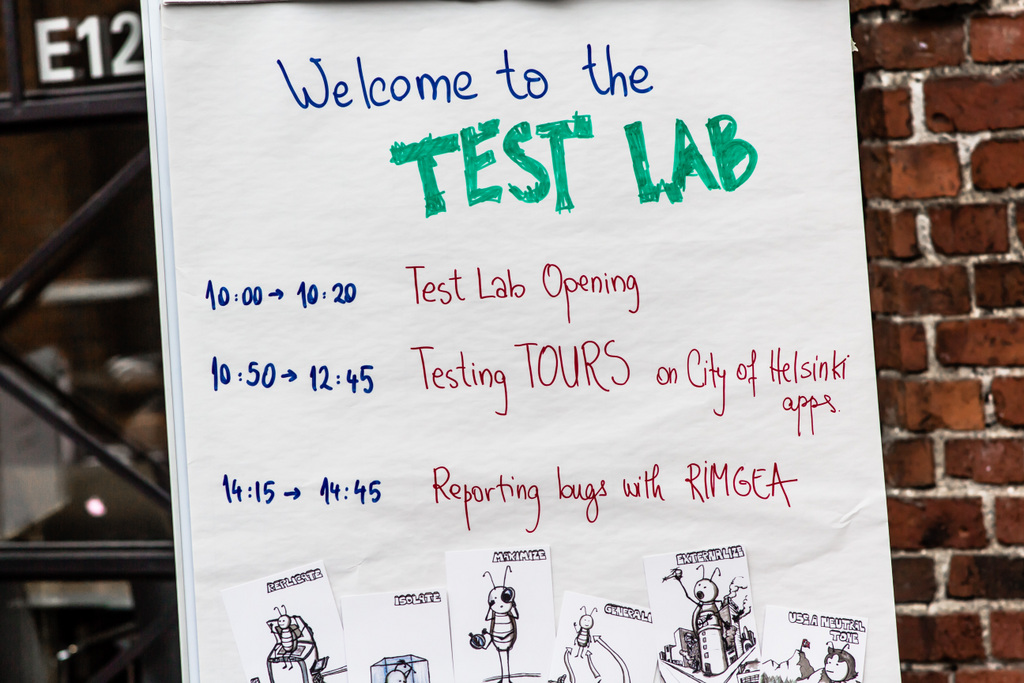 E12
Welcome to the
TEST LAB
10:00 → 10:20 Test Lab Opening
10:50 → 12:45 Testing TOURS on City of Helsinki
apps.
14:15 → 14:45 Reporting bugs with RIMGEA
REPLICATE
ISOLATE
MAXIMIZE
GENERALI
EXTERNALIZE
USE A NEUTRAL
TONE